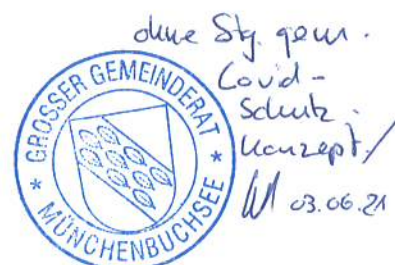 ohne Stg. gem.
Covid-
Schutz-
Konzept./
03.06.21
* GROSSER GEMEINDERAT *
MÜNCHENBUCHSEE